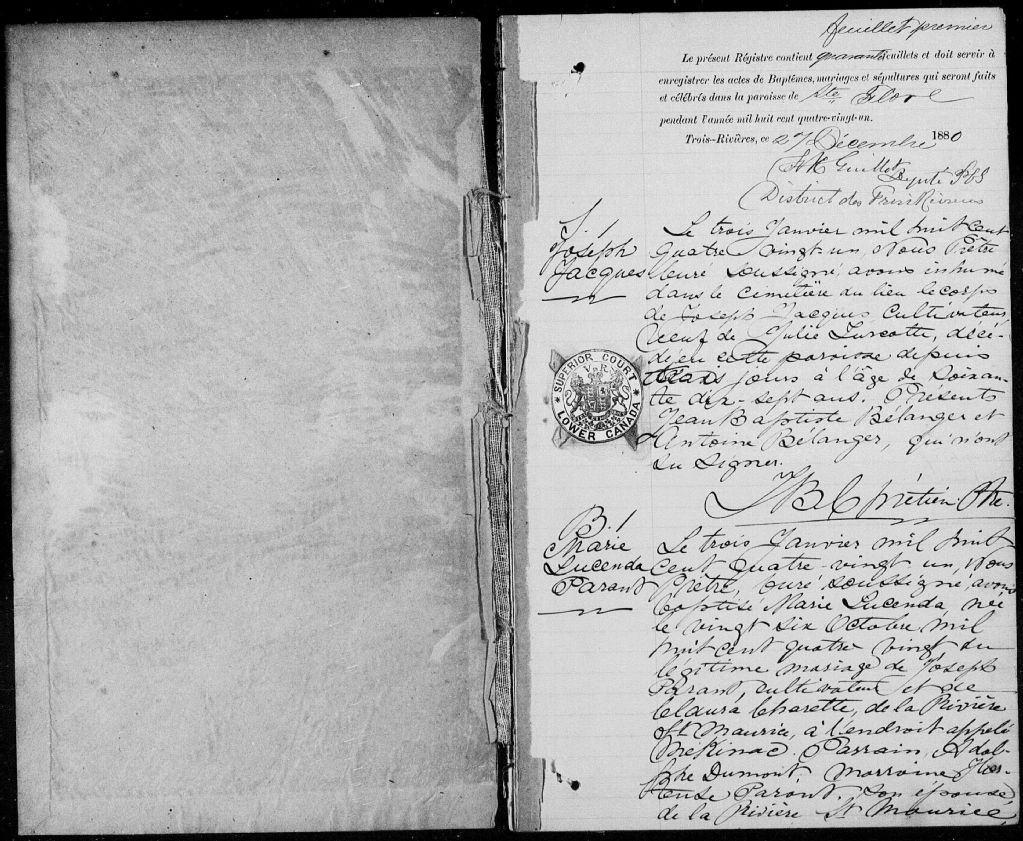 feuillet premier
Le présent Régistre contient quarante feuillets et doit servir à
enregistrer les actes de Baptêmes, mariages et sépultures qui seront faits
et célébrés dans la paroisse de Ste Flore
pendant l'année mil huit cent quatre-vingt-un.
Trois-Rivières, ce 27 Décembre 1880
Guillet
Député P C S
District des Trois Rivières
S. 1
Joseph
Jacques
Le trois Janvier mil huit cent
quatre vingt un, Nous Prêtre
Curé soussigné, avons inhumé
dans le cimetière du lieu le corps
de Joseph Jacques Cultivateur,
veuf de Julie Turcotte, décé-
dé en cette paroisse depuis
trois jours à l'âge de soixan-
te dix-sept ans. Présents
Jean Baptiste Bélanger et
Antoine Bélanger, qui n'ont
su signer.
J B Chrétien Ptre.
SUPERIOR COURT
V R
LOWER CANADA
B. 1
Marie
Lucenda
Parant
Le trois Janvier mil huit
cent quatre-vingt un, Nous
Prêtre, curé soussigné, avons
baptisé Marie Lucenda, née
le vingt six Octobre mil
huit cent quatre vingt du
légitime mariage de Joseph
Parant, cultivateur et de
Claura Charette, de la Rivière
St Maurice, à l'endroit appelé
Mékinac. Parrain, Adol-
phe Dumont, Marraine, Hor-
tense Parant, son épouse
de la Rivière St Maurice,